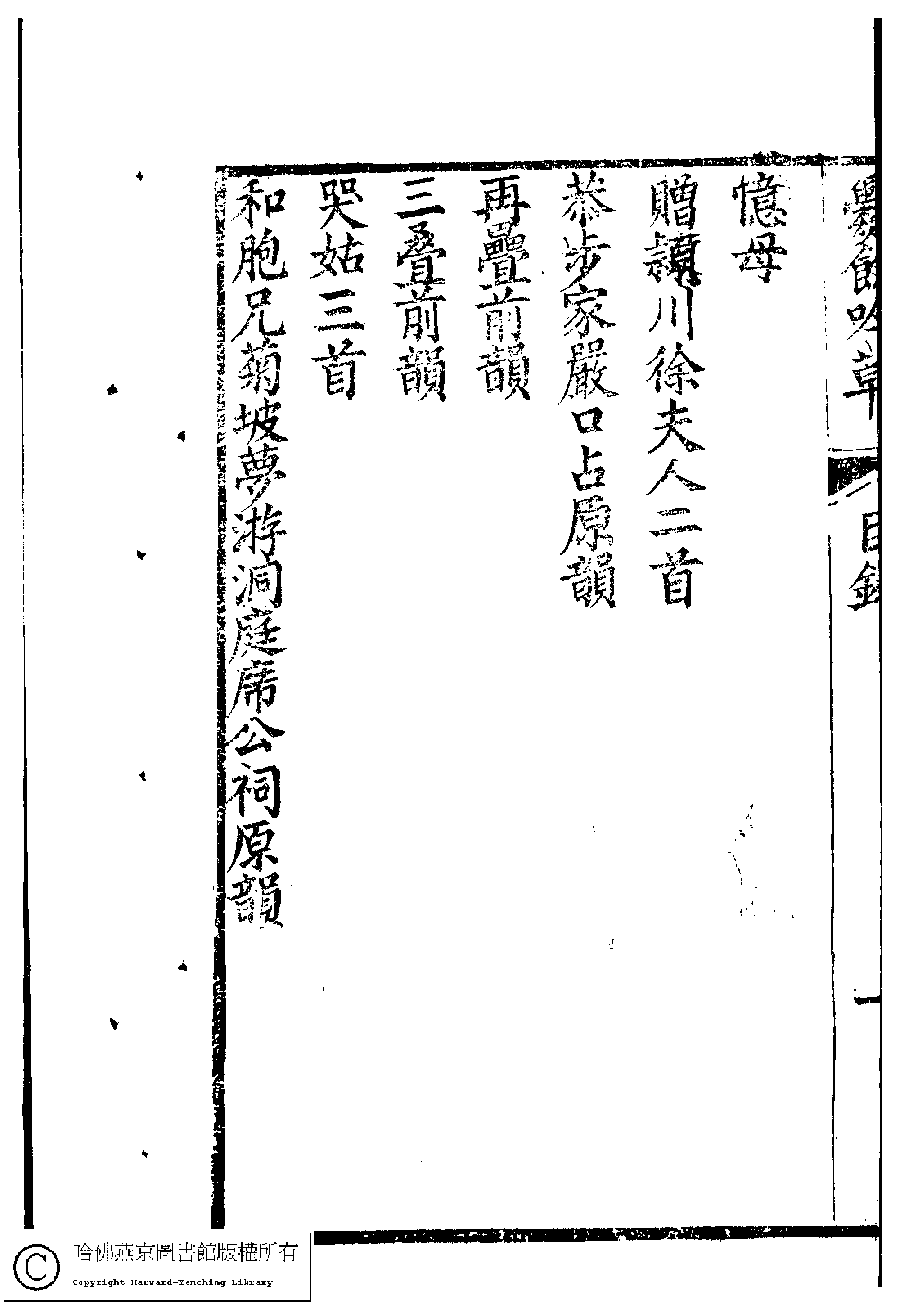 爨餘吟草
目錄
一
憶母
贈潁川徐夫人二首
恭步家嚴口占原韻
再疊前韻
三叠前韻
哭姑三首
和胞兄菊坡夢游洞庭席公祠原韻
哈佛燕京圖書館版權所有
Copyright Harvard-Yenching Library